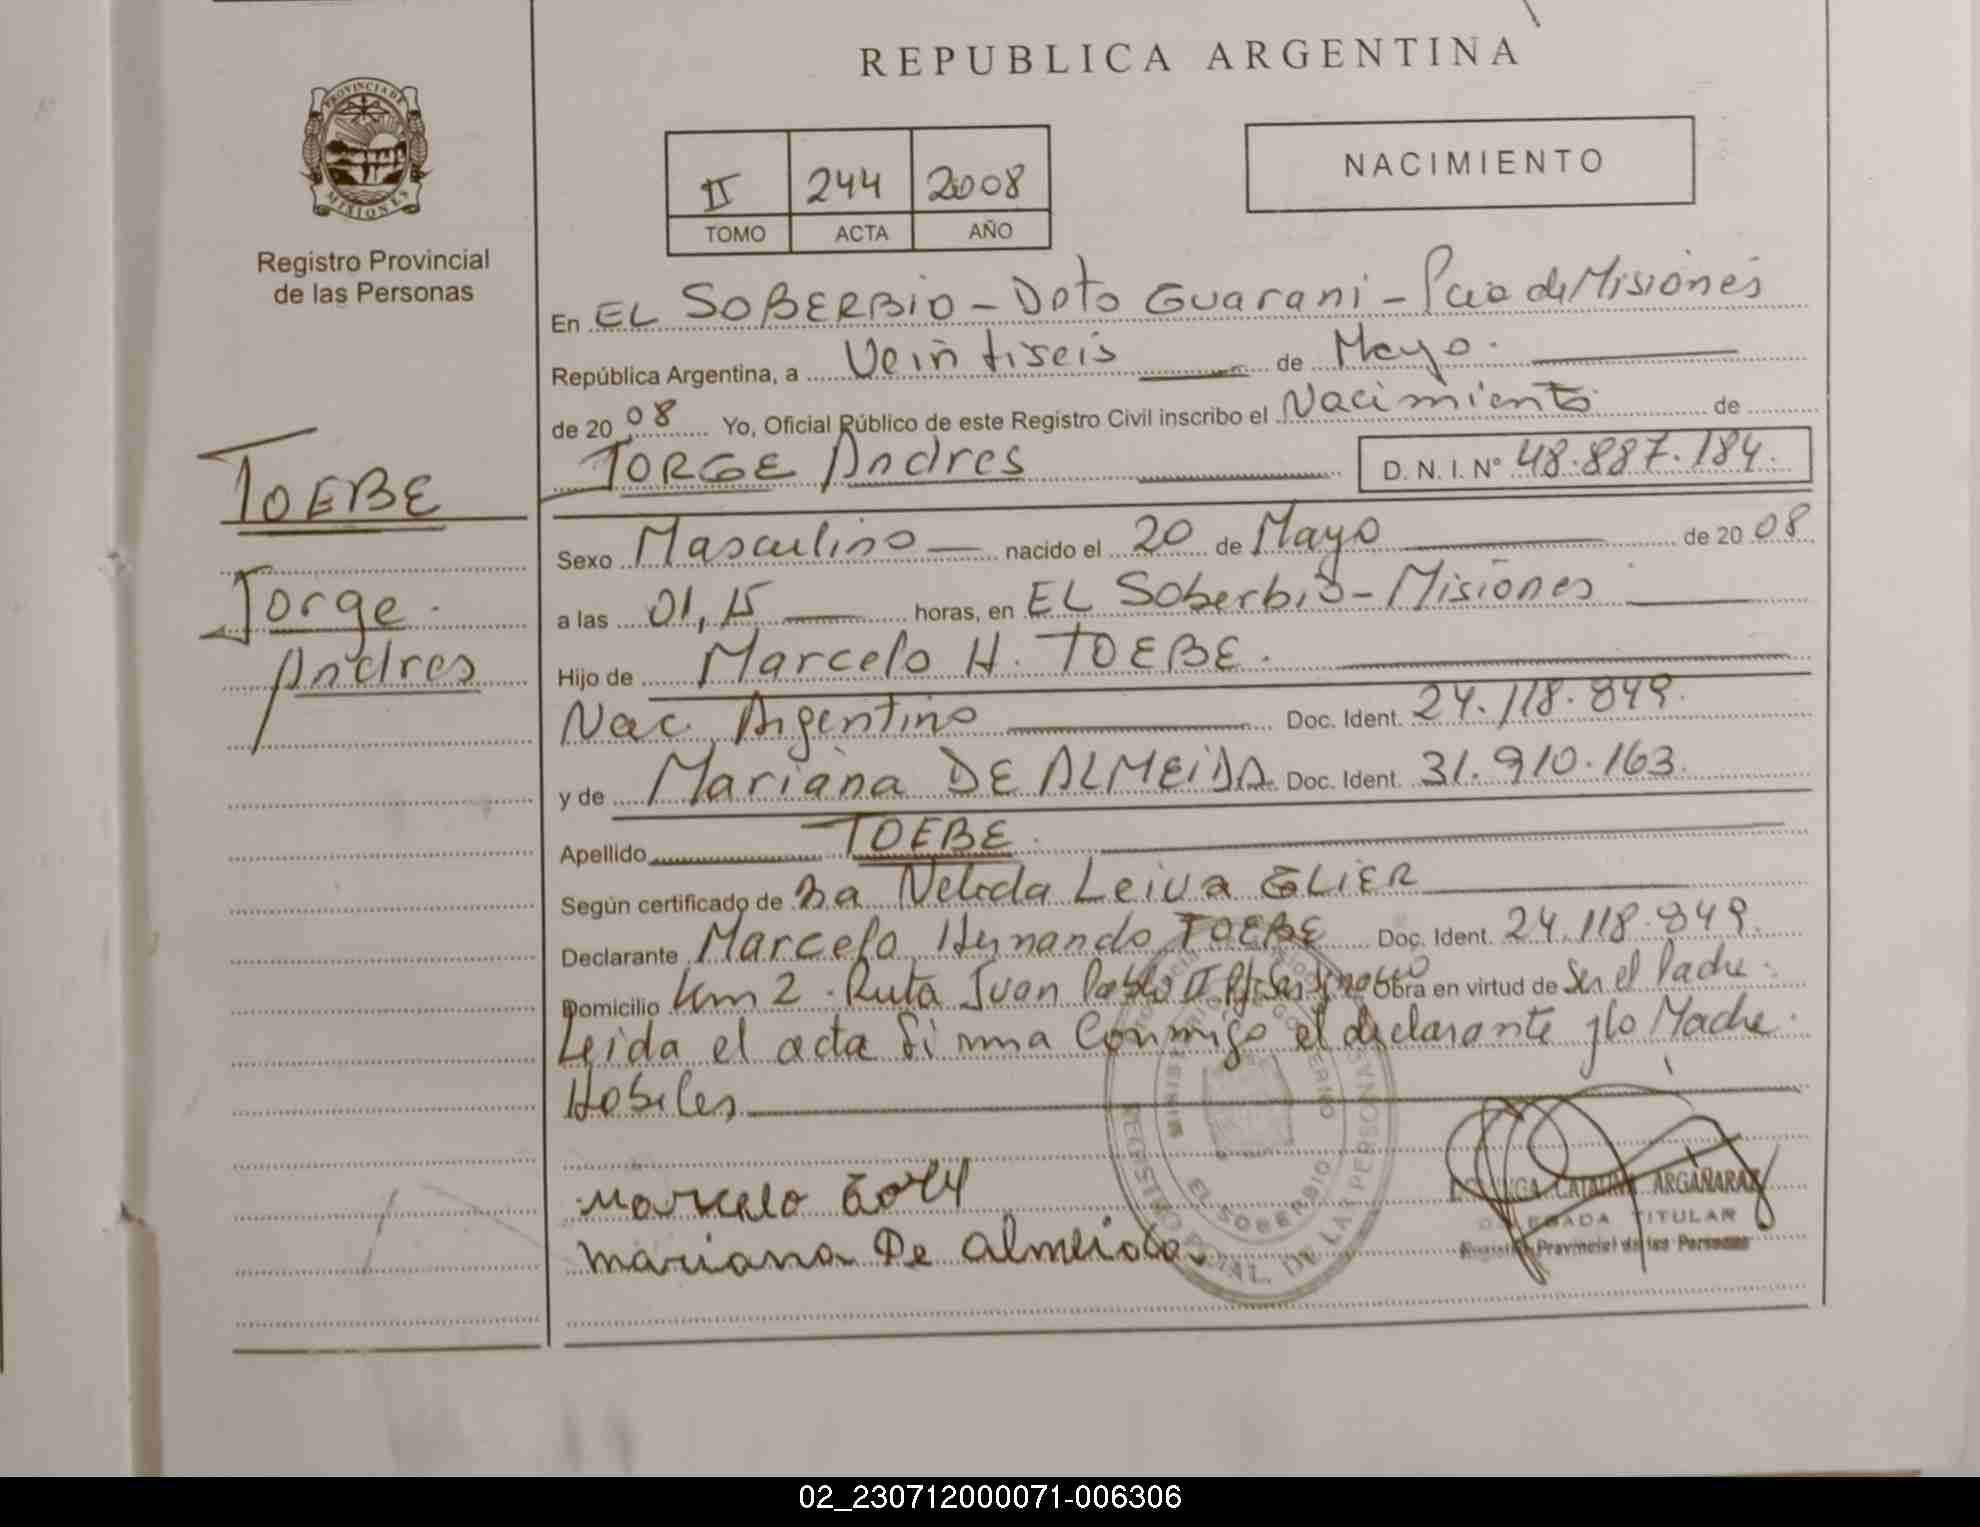 REPUBLICA ARGENTINA
PROVINCIA DE
MISIONES
Registro Provincial
de las Personas
II 244 2008
TOMO ACTA AÑO
NACIMIENTO
En EL SOBERBIO - Dpto Guarani - Pcia de Misiones
República Argentina, a Veintiseis de Mayo.
de 2008 Yo, Oficial Público de este Registro Civil inscribo el Nacimiento de
JORGE Andres D. N. I. N° 48.887.184.
TOEBE
Jorge
Andres
Sexo Masculino nacido el 20 de Mayo de 2008
a las 01,15 horas, en EL Soberbio - Misiones
Hijo de Marcelo H. TOEBE.
Nac Argentino Doc. Ident. 24.118.849.
y de Mariana DE ALMEIDA Doc. Ident. 31.910.163.
Apellido TOEBE.
Según certificado de Nelida Leiva GLIER
Declarante Marcelo Hernando TOEBE Doc. Ident. 24.118.849.
Domicilio Km 2 . Ruta Juan Pablo II Obra en virtud de Ser el Padre.
Leida el acta firma Conmigo el declarante y lo Madre.
Habiles
Marcelo
Mariana De Almeida
CATALINA ARGAÑARAZ
DELEGADA TITULAR
Registro Provincial de las Personas
EL SOBERBIO
02_230712000071-006306